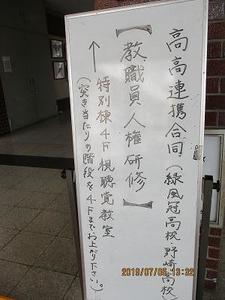 高高連携合同(緑風冠高校 野崎高校)
【教職員人権研修】
↑特別棟4F視聴覚教室
(突き当たりの階段を4Fまでお上がり下さい。)
2019/07/05 13:32